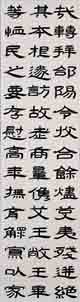 哉轉拜郃陽令收合餘燼芟夷殘迸絕
其本根遂訪故老商量儁艾王敞王畢
等恤民之要存慰高年撫育鰥寡以家